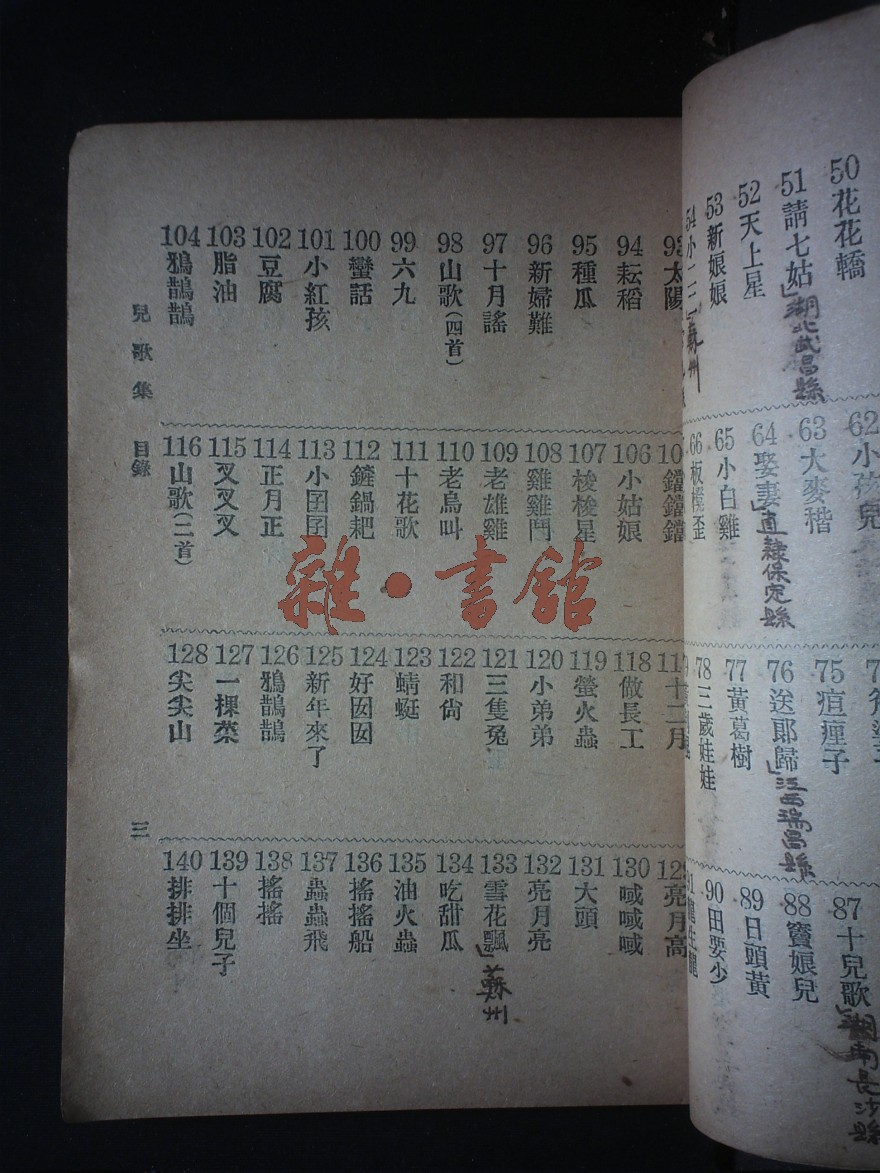 50 花花轎
51 請七姑 湖北武昌縣
52 天上星
53 新娘娘
54 小二三 蘇州
62 小孩兒
63 大麥稭
64 娶妻 直隸保定縣
65 小白雞
66 板櫈歪
75 痘瘇子
76 送郎歸 江西瑞昌縣
77 黃葛樹
78 三歲娃娃
87 十兒歌 湖南長沙縣
88 竇娘兒
89 日頭黃
90 田要少
93 太陽
94 耘稻
95 種瓜
96 新婦難
97 十月謠
98 山歌(四首)
99 六九
100 蠻話
101 小紅孩
102 豆腐
103 脂油
104 鴉鵲鵲
鐺鐺鐺
106 小姑娘
107 梭梭星
108 雞雞鬥
109 老雄雞
110 老鳥叫
111 十花歌
112 鏟鍋耙
113 小囝囝
114 正月正
115 叉叉叉
116 山歌(二首)
117 十二月
118 做長工
119 螢火蟲
120 小弟弟
121 三隻兔
122 和尙
123 蜻蜓
124 好囡囡
125 新年來了
126 鴉鵲鵲
127 一棵菜
128 尖尖山
129 亮月高
130 喊喊喊
131 大頭
132 亮月亮
133 雪花飄 蘇州
134 吃甜瓜
135 油火蟲
136 搖搖船
137 蟲蟲飛
138 搖搖
139 十個兒子
140 排排坐
兒歌集 目錄
三
雜·書館